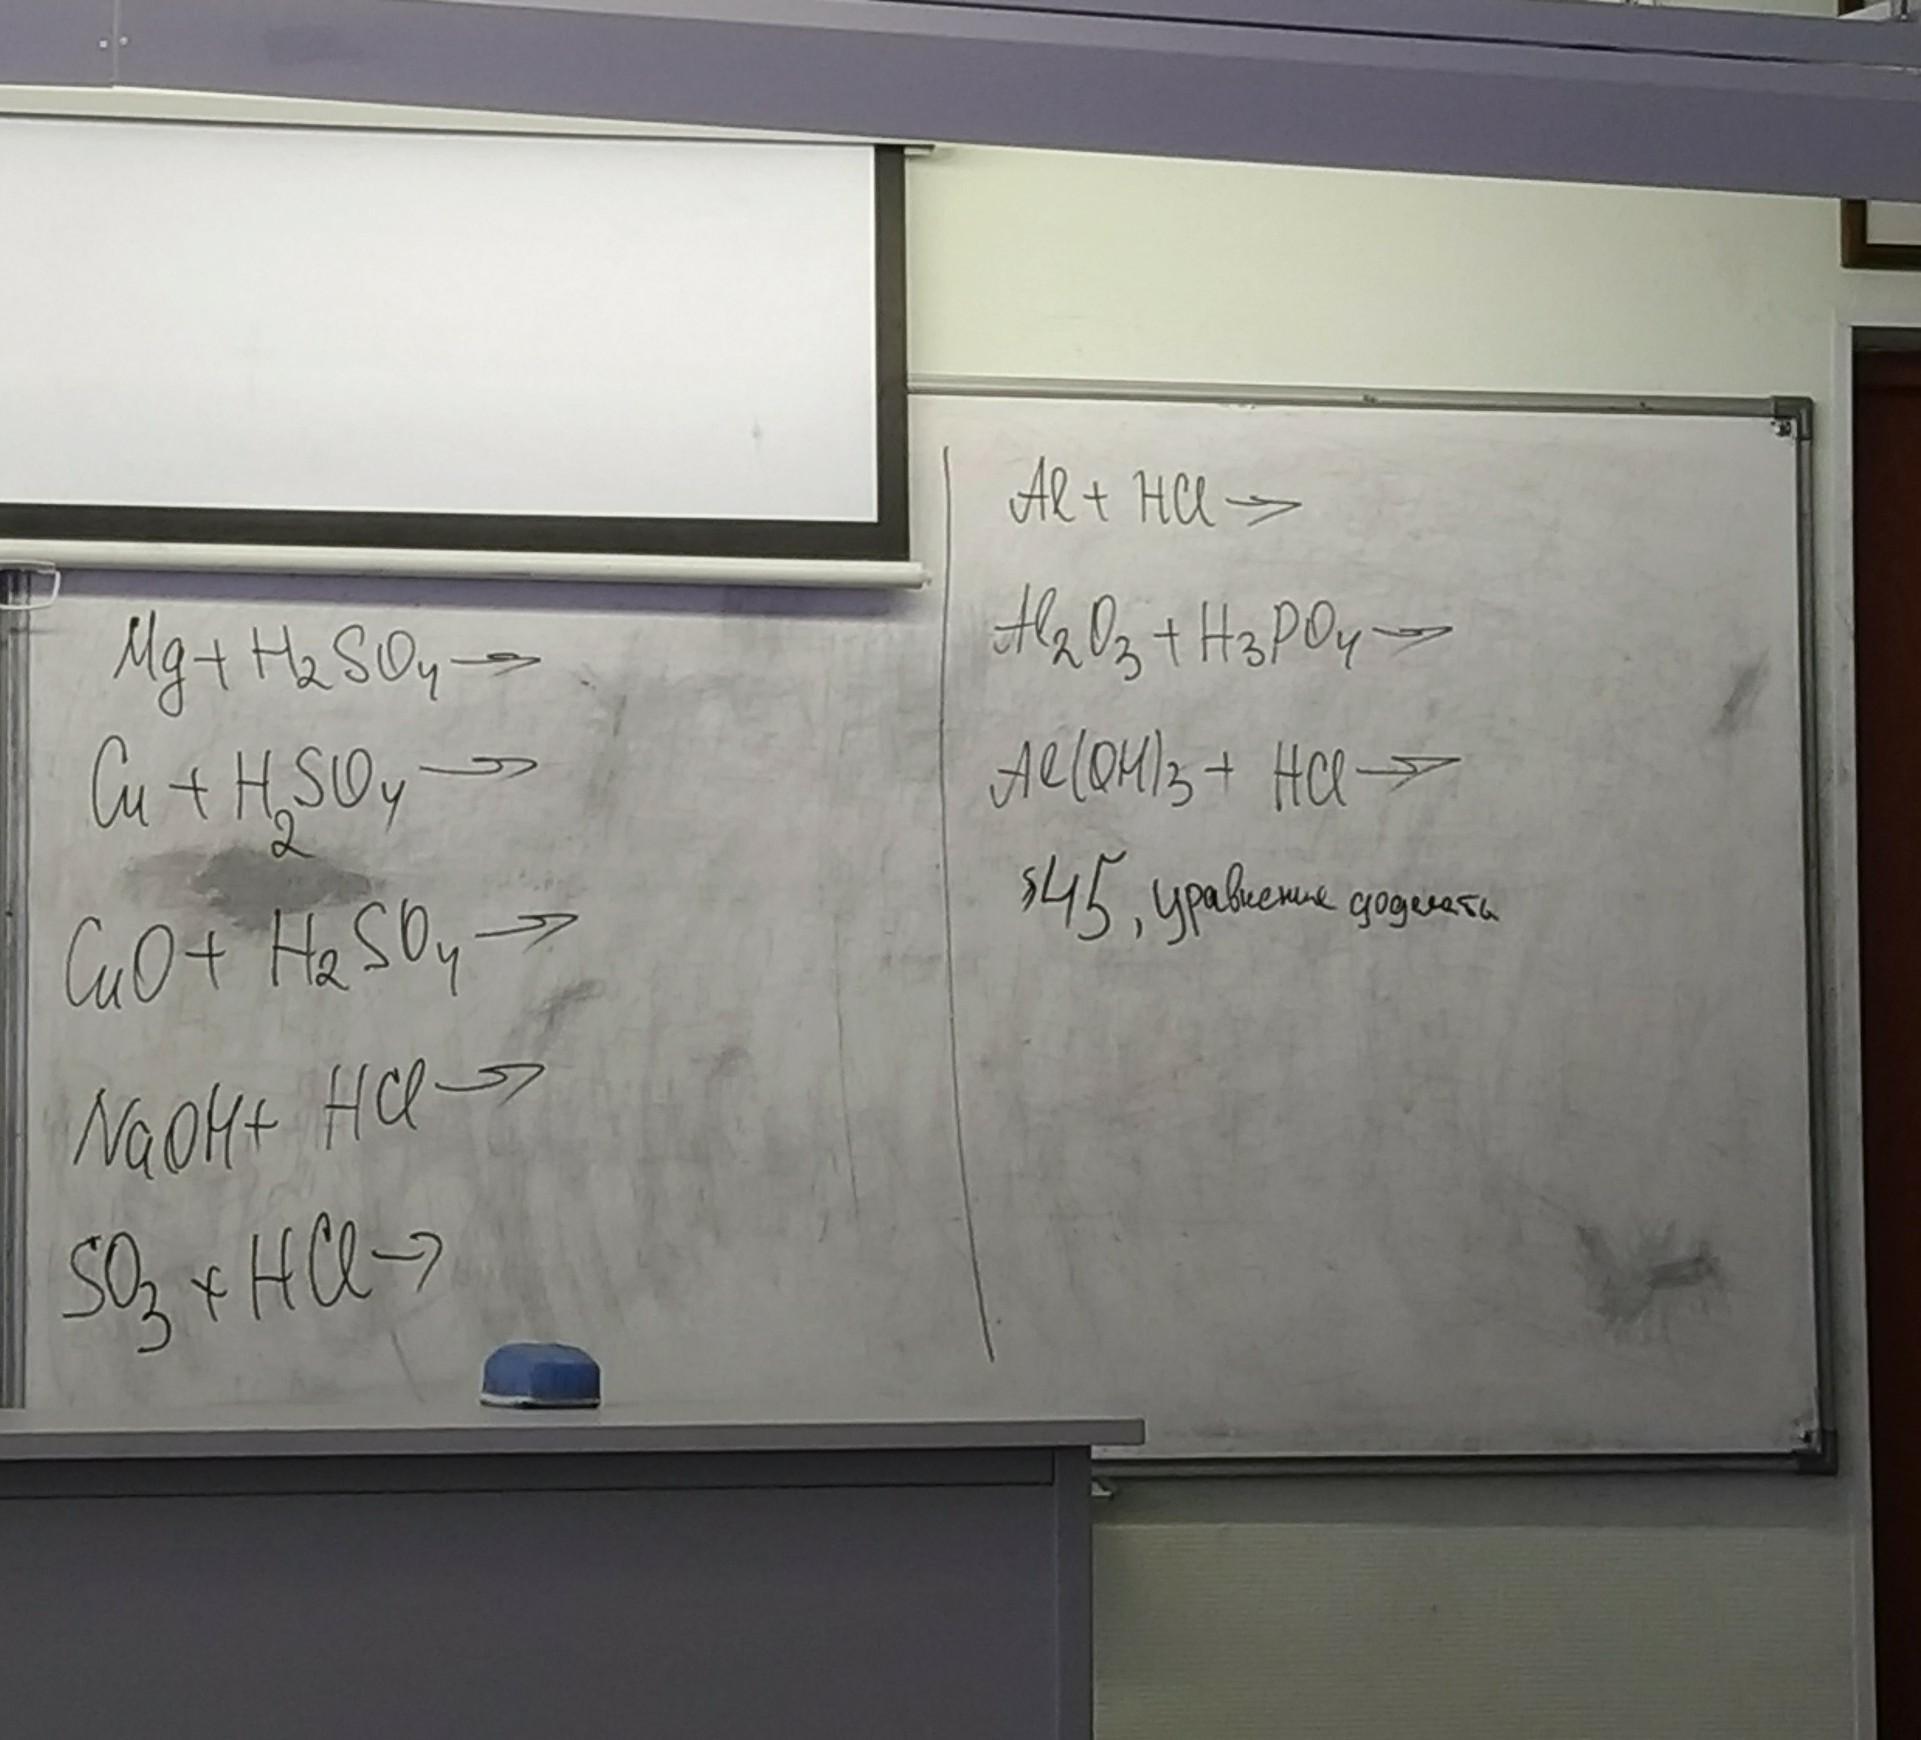 Mg + H₂SO₄ →
Cu + H₂SO₄ →
CuO + H₂SO₄ →
NaOH + HCl →
SO₃ + HCl →
Al + HCl →
Al₂O₃ + H₃PO₄ →
Al(OH)₃ + HCl →
§45, уравнение доделать